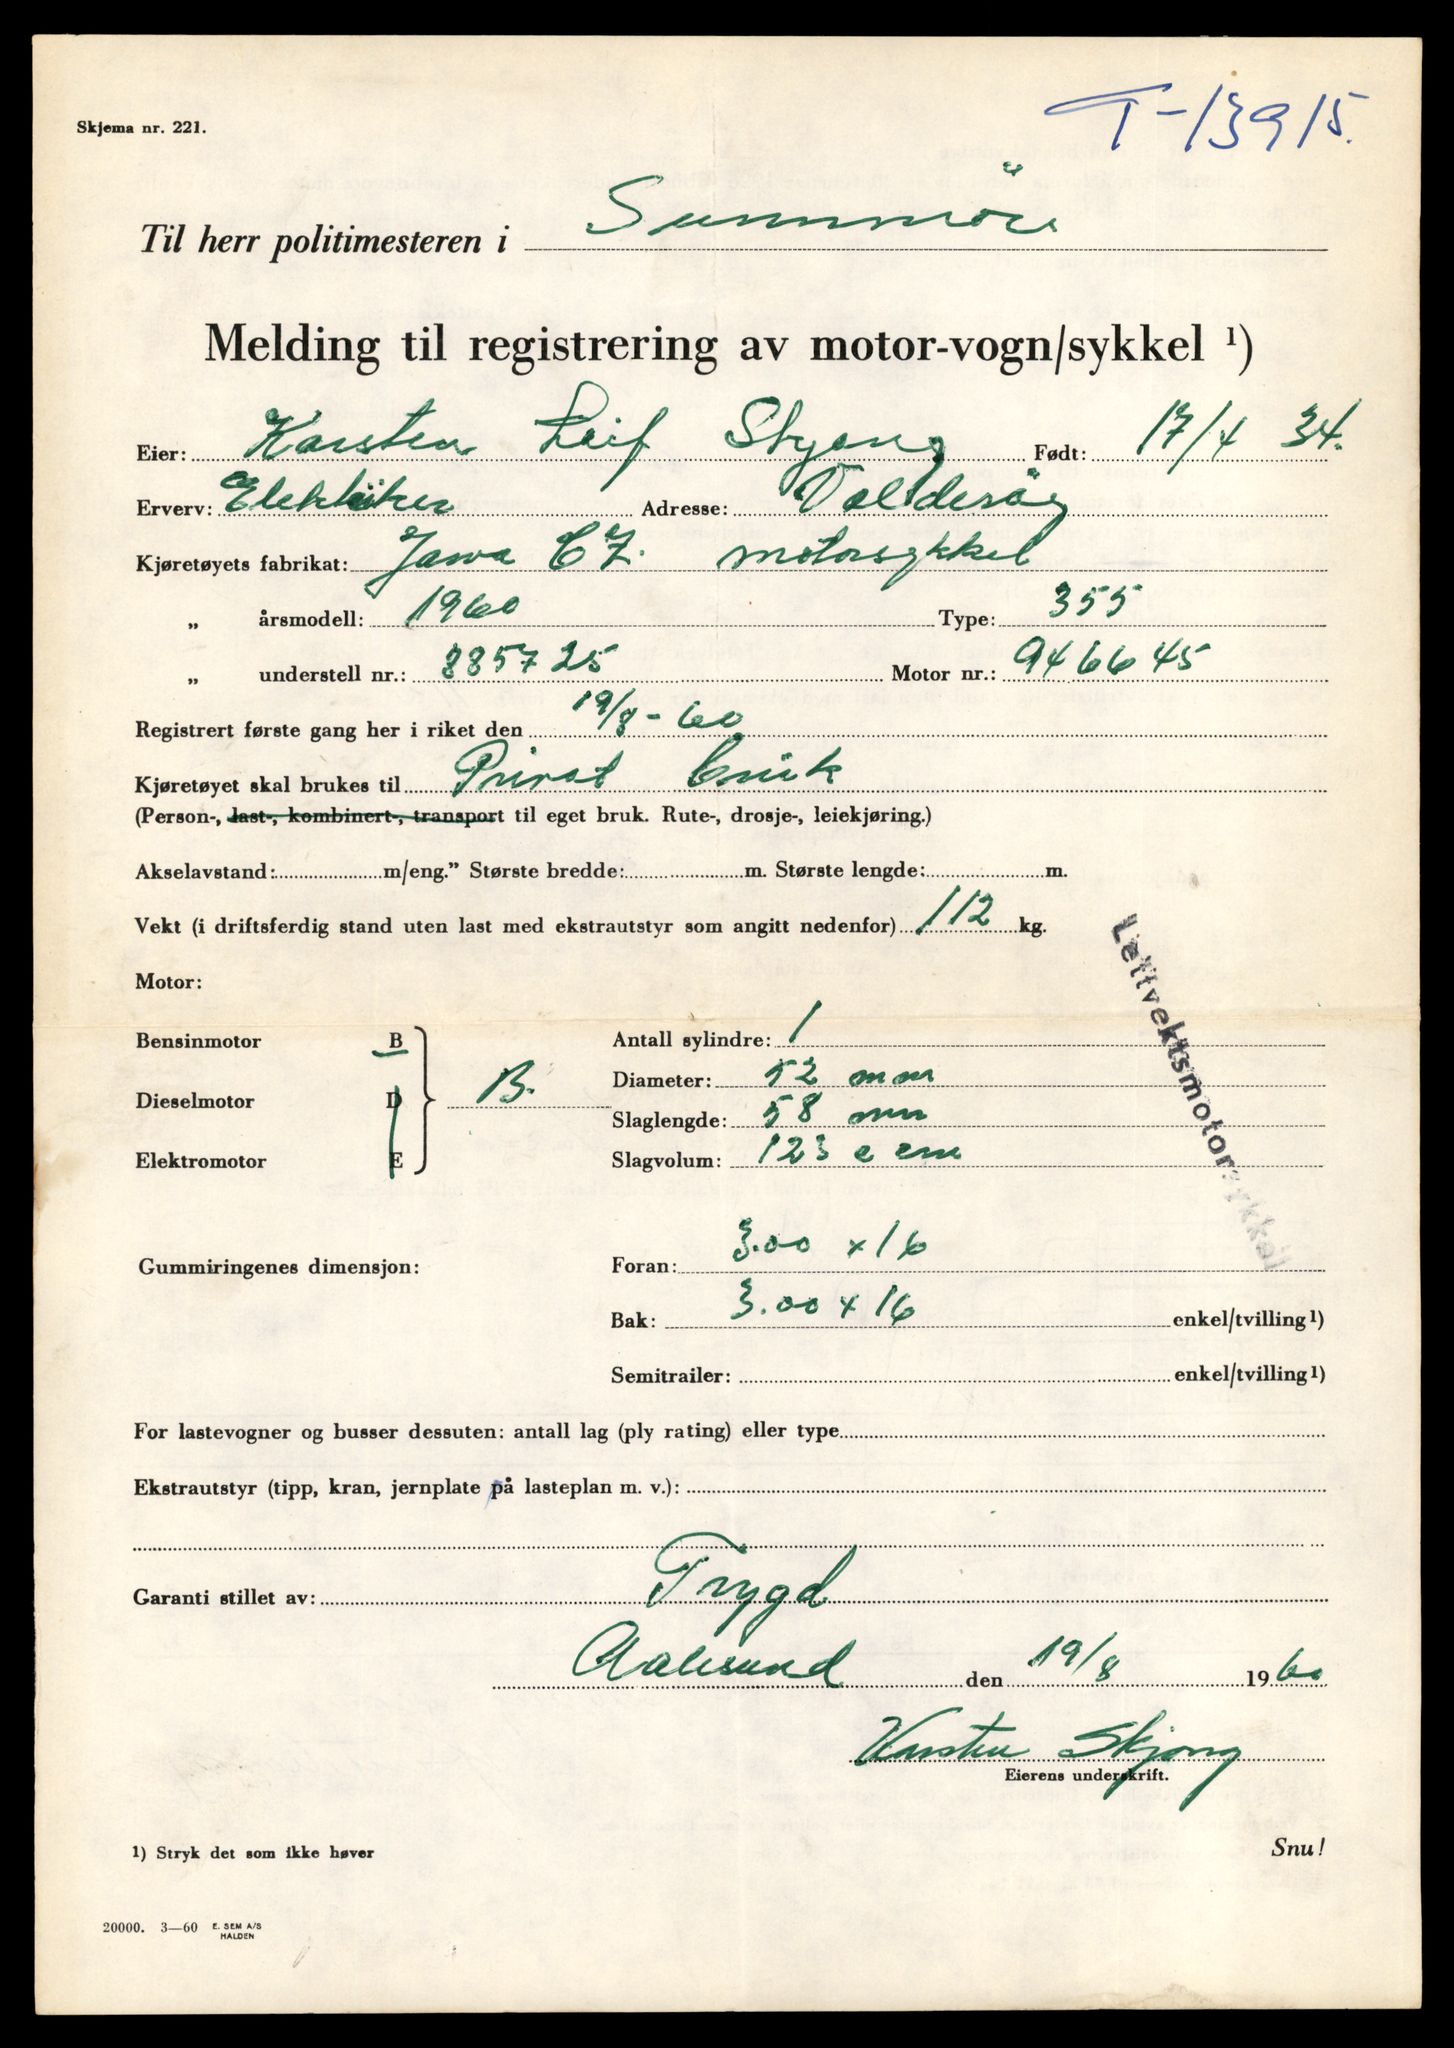 T-13915.
Skjema nr. 221.
Til herr politimesteren i Sunnmöre
Melding til registrering av motor-vogn/sykkel ¹)
Eier: Karsten Leif Skjong Født: 17/4 34.
Erverv: Elektriker Adresse: Valderöy
Kjøretøyets fabrikat: Jawa CZ. motorsykkel
„ årsmodell: 1960 Type: 355
„ understell nr.: 885725 Motor nr.: 946645
Registrert første gang her i riket den 19/8-60
Kjøretøyet skal brukes til Privat bruk
(Person-, last-, kombinert-, transport til eget bruk. Rute-, drosje-, leiekjøring.)
Akselavstand: m/eng.” Største bredde: m. Største lengde: m.
Vekt (i driftsferdig stand uten last med ekstrautstyr som angitt nedenfor) 112 kg.
Lettvektsmotorsykkel
Motor:
Bensinmotor B Antall sylindre: 1
B. Diameter: 52 mm
Dieselmotor D Slaglengde: 58 mm
Elektromotor E Slagvolum: 123 c cm
Gummiringenes dimensjon: Foran: 3.00 x 16
Bak: 3.00 x 16 enkel/tvilling¹)
Semitrailer: enkel/tvilling¹)
For lastevogner og busser dessuten: antall lag (ply rating) eller type
Ekstrautstyr (tipp, kran, jernplate på lasteplan m. v.):
Garanti stillet av: Trygd
Aalesund den 19/8 1960
Karsten Skjong
Eierens underskrift.
1) Stryk det som ikke høver Snu!
20000. 3—60 E. SEM A/S
HALDEN